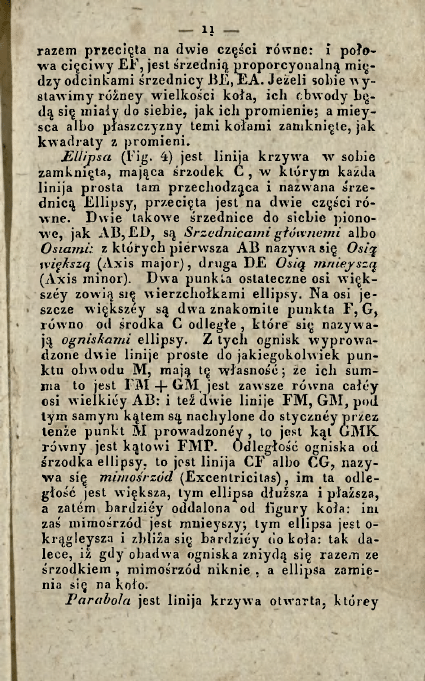 — 11 —
razem przecięta na dwie części równe: i poło-
wa cięciwy EF, jest śrzednią proporcyonalną mię-
dzy odcinkami śrzednicy BE, EA. Jeżeli sobie wy-
stawimy różney wielkości koła, ich obwody bę-
dą się miały do siebie, jak ich promienie; a miey-
sca albo płaszczyzny temi kołami zamknięte, jak
kwadraty z promieni.
Ellipsa (Fig. 4) jest linija krzywa w sobie
zamknięta, mająca śrzodek C, w którym każda
linija prosta tam przechodząca i nazwana śrze-
dnicą Ellipsy, przecięta jest na dwie części ró-
wne. Dwie takowe śrzednice do siebie piono-
we, jak AB, ED, są Srzednicami głównemi albo
Osiami: z których pierwsza AB nazywa się Osią
większą (Axis major), druga DE Osią mnieyszą
(Axis minor). Dwa punkta ostateczne osi więk-
széy zowią się wierzchołkami ellipsy. Na osi je-
szcze większéy są dwa znakomite punkta F, G,
równo od środka C odległe, które się nazywa-
ją ogniskami ellipsy. Z tych ognisk wyprowa-
dzone dwie linije proste do jakiegokolwiek pun-
ktu obwodu M, mają tę własność; że ich sum-
ma to jest FM + GM jest zawsze równa całéy
osi wielkiéy AB: i też dwie linije FM, GM, pod
tym samym kątem są nachylone do stycznéy przez
tenże punkt M prowadzonéy, to jest kąt GMK
równy jest kątowi FMP. Odległość ogniska od
śrzodka ellipsy, to jest linija CF albo CG, nazy-
wa się mimośrzód (Excentricitas), im ta odle-
głość jest większa, tym ellipsa dłuższa i płaższa,
a zatém bardziéy oddalona od figury koła: im
zaś mimośrzód jest mnieyszy; tym ellipsa jest o-
krągleysza i zbliża się bardziéy do koła: tak da-
lece, iż gdy obadwa ogniska zniydą się razem ze
śrzodkiem, mimośrzód niknie, a ellipsa zamie-
nia się na koło.
Parabola jest linija krzywa otwarta, którey